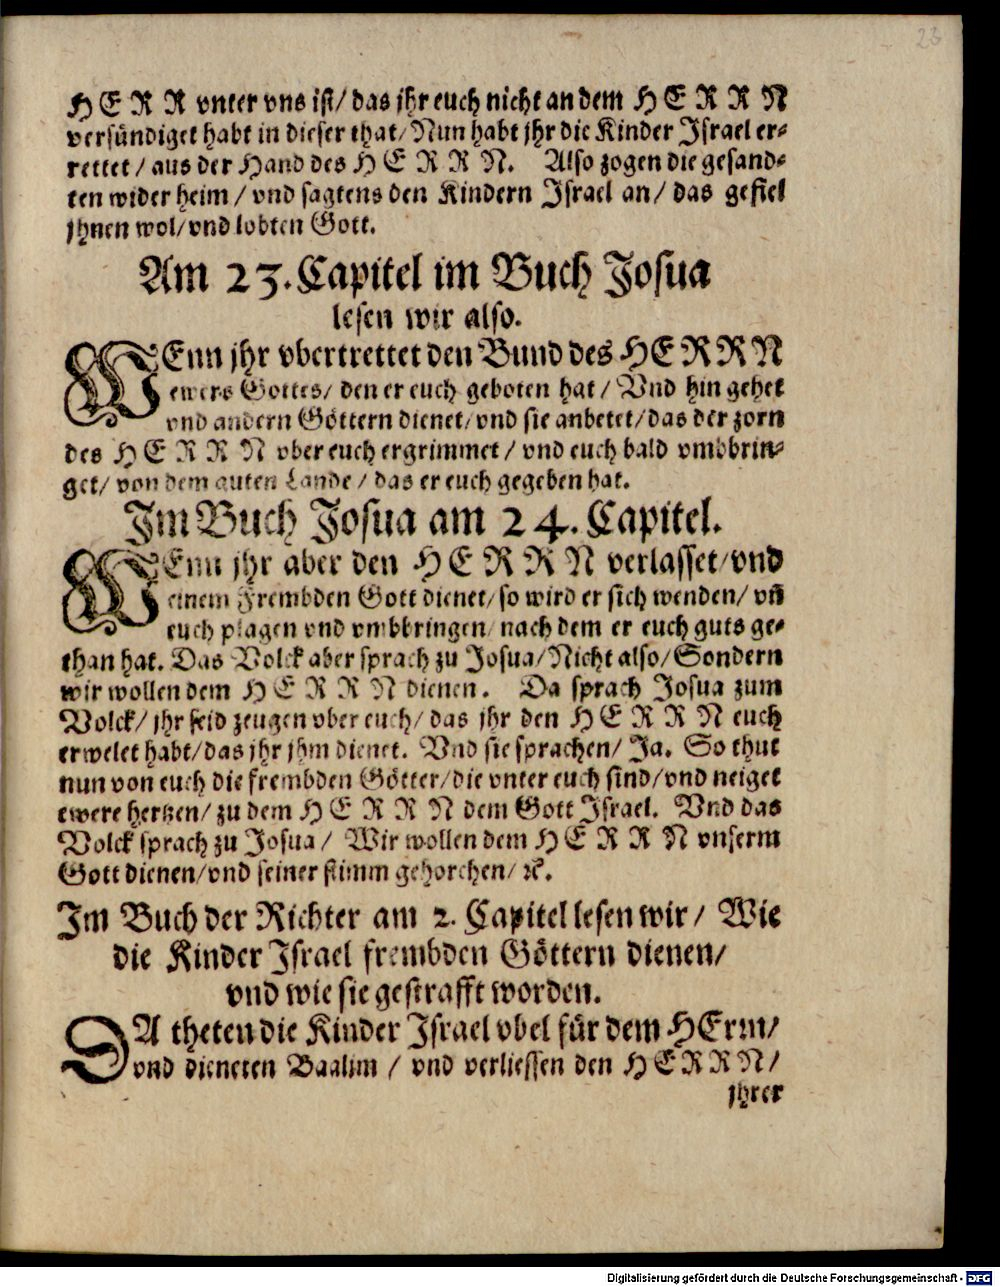 23
HERR vnter vns ist/ das jhr euch nicht an dem HERRN
versündiget habt in dieser that/ Nun habt jhr die Kinder Israel er-
rettet/ aus der Hand des HERRN. Also zogen die gesand-
ten wider heim/ vnd sagtens den Kindern Israel an/ das gefiel
jhnen wol/ vnd lobten Gott.
Am 23. Capitel im Buch Josua
lesen wir also.
WEnn jhr vbertrettet den Bund des HERRN
ewers Gottes/ den er euch geboten hat/ Vnd hin gehet
vnd andern Göttern dienet/ vnd sie anbetet/ das der zorn
des HERRN vber euch ergrimmet/ vnd euch bald vmbbrin-
get/ von dem guten Lande/ das er euch gegeben hat.
Im Buch Josua am 24. Capitel.
WEnn jhr aber den HERRN verlasset/ vnd
einem Frembden Gott dienet/ so wird er sich wenden/ vñ
euch plagen vnd vmbbringen/ nach dem er euch guts ge-
than hat. Das Volck aber sprach zu Josua/ Nicht also/ Sondern
wir wollen dem HERRN dienen. Da sprach Josua zum
Volck/ jhr seid zeugen vber euch/ das jhr den HERRN euch
erwelet habt/ das jhr jhm dienet. Vnd sie sprachen/ Ja. So thut
nun von euch die frembden Götter/ die vnter euch sind/ vnd neiget
ewere hertzen/ zu dem HERRN dem Gott Israel. Vnd das
Volck sprach zu Josua/ Wir wollen dem HERRN vnserm
Gott dienen/ vnd seiner stimm gehorchen/ ꝛc.
Im Buch der Richter am 2. Capitel lesen wir/ Wie
die Kinder Israel frembden Göttern dienen/
vnd wie sie gestrafft worden.
DA theten die Kinder Israel vbel für dem HErrn/
vnd dieneten Baalim/ vnd verliessen den HERRN/
jhrer
Digitalisierung gefördert durch die Deutsche Forschungsgemeinschaft - DFG